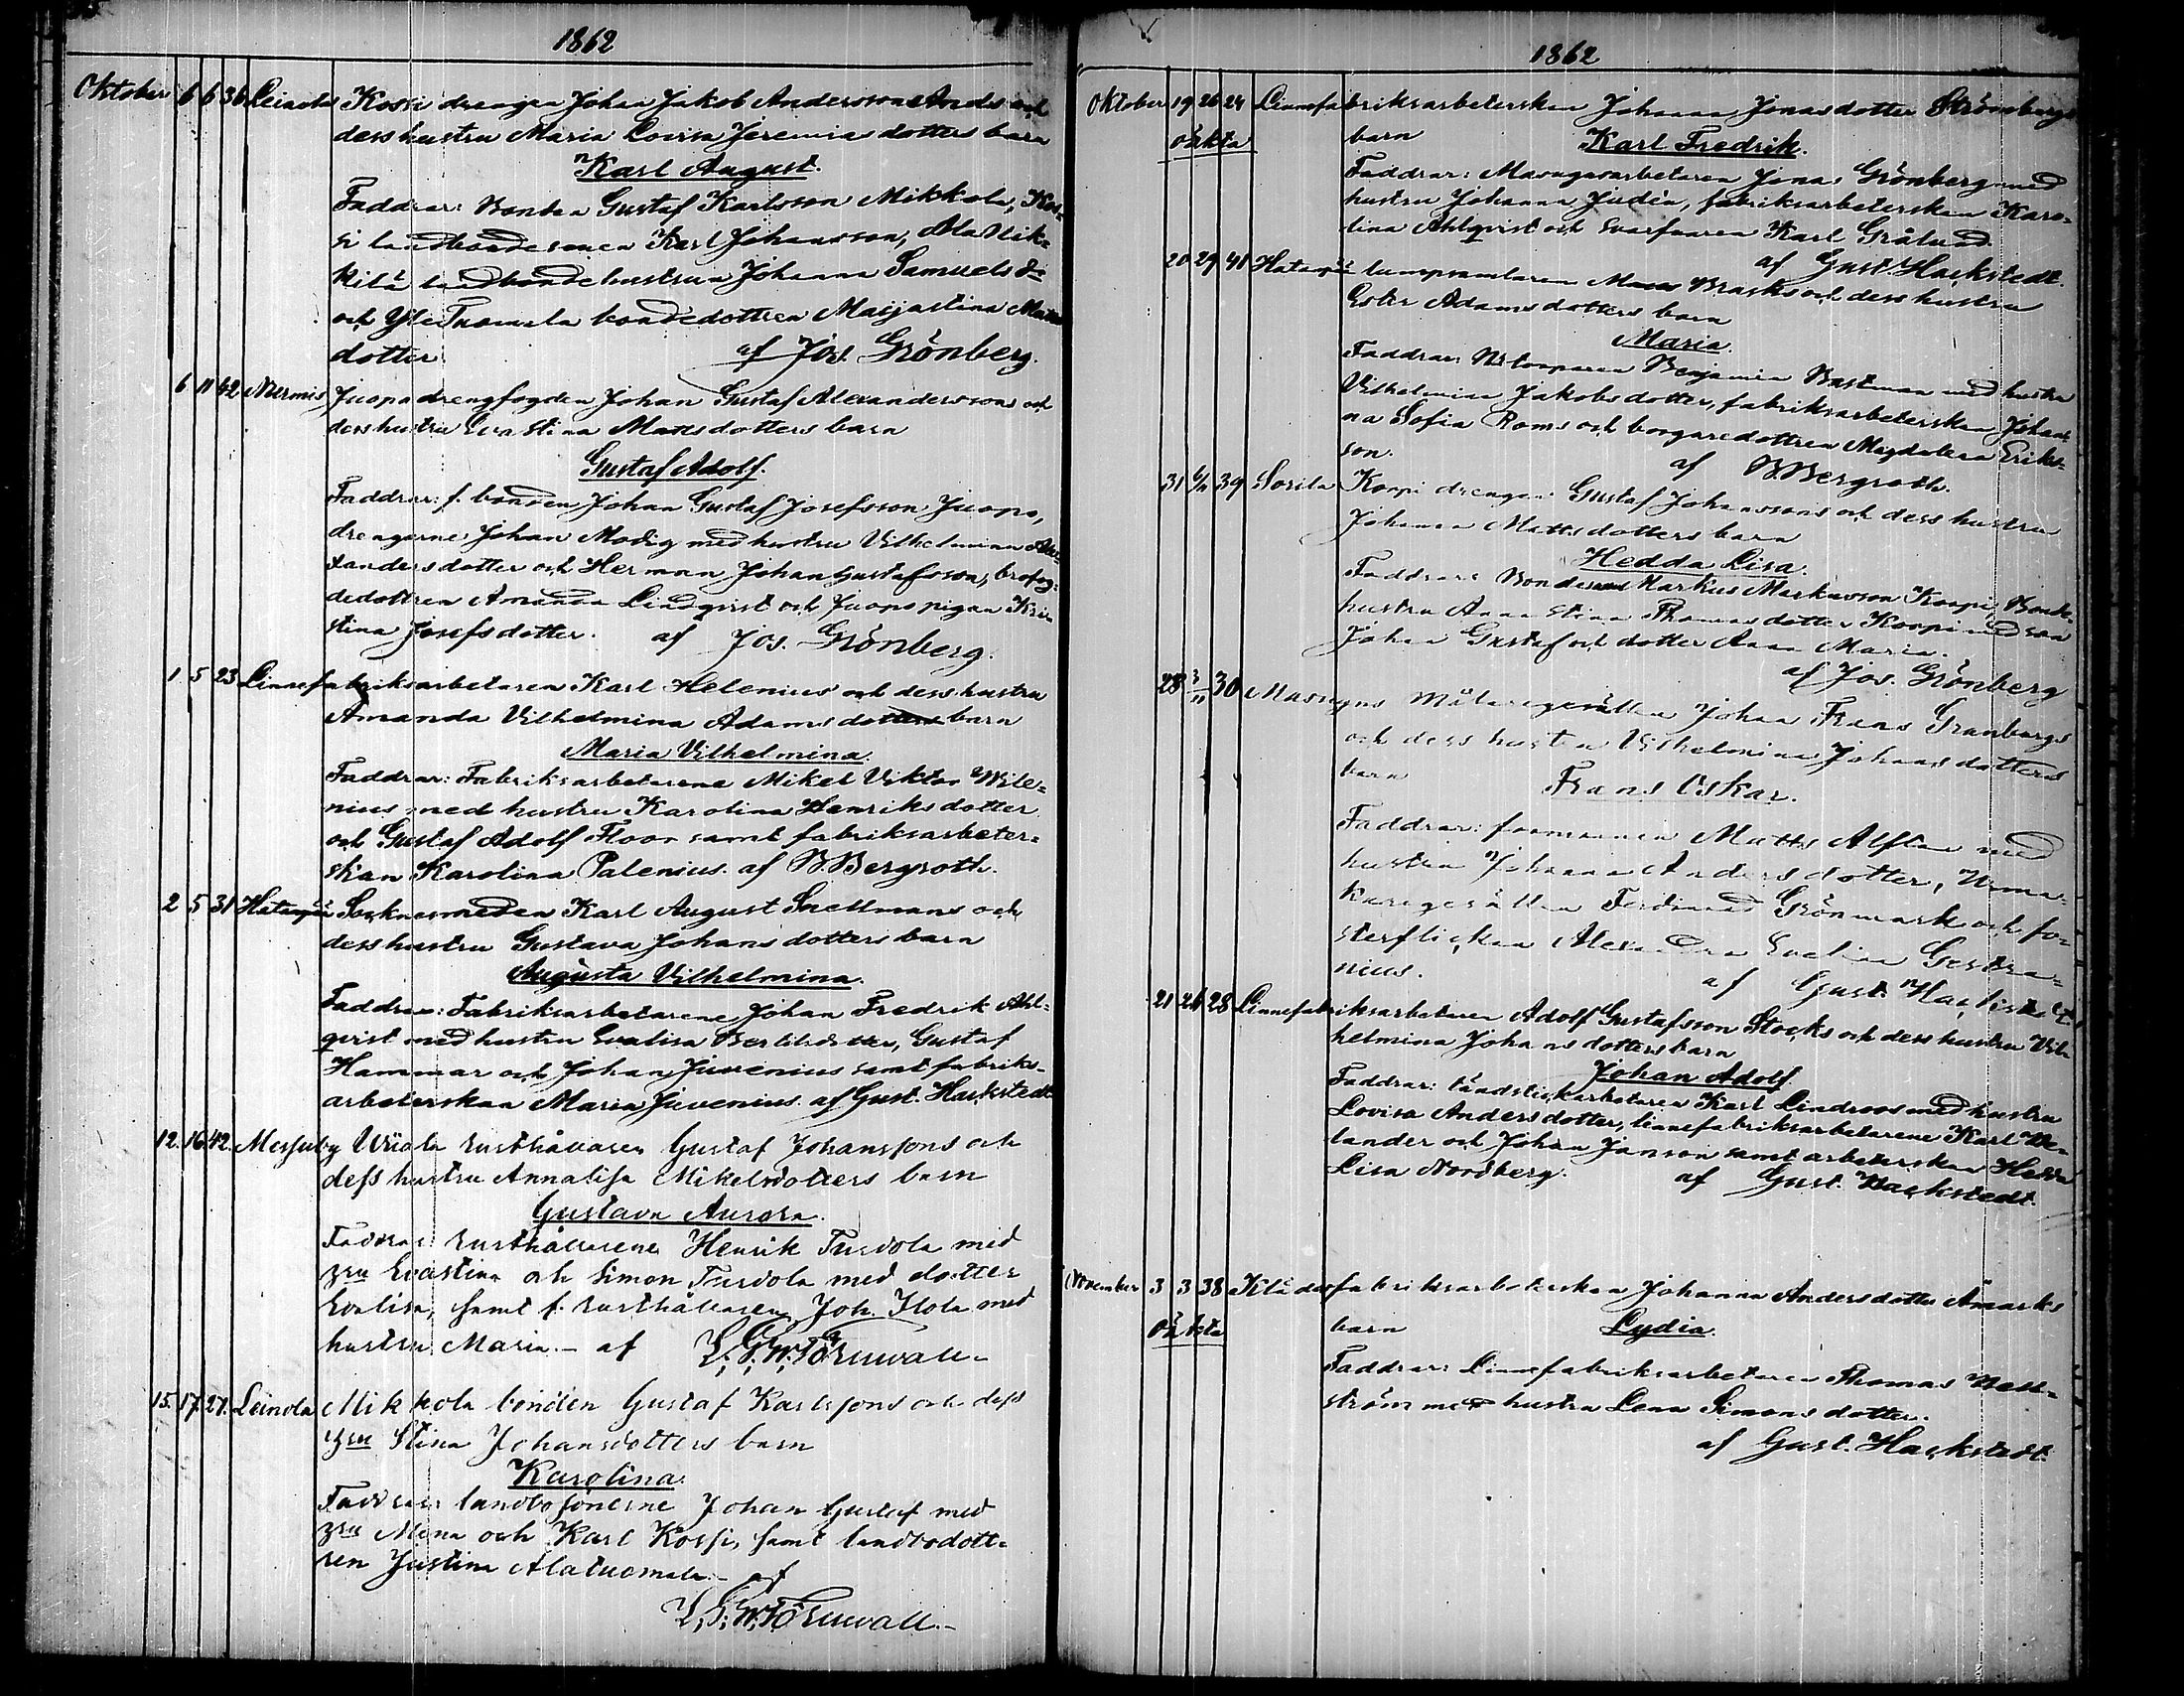 1862
Oktober 6 6 36 Leinola Kossi drengen Johan Jakob Anderssons Ands och
dess hustru Maria Lovisa Jeremiæ dotters barn
Karl August.
Faddrar: Bonden Gustaf Karlsson Mikkola, Kos-
si landbondesonen Karl Johansson, Ala Uik-
kilä landbondehustrun Johanna Samuels dr
och Yli Tuomela bondedottren Maijastina
dotter. af Jos. Grönberg.
6 11 42 Nurmis Juopo drengfogden Johan Gustaf Alexanderssons och
dess hustru Evastina Matsdotters barn
Gustaf Adolf.
Faddrar: f. bonden Johan Gustaf Josefsson Juopo,
drengarne Johan Modig med hustru Vilhelmina Alex-
andersdotter och Herman Johan Gustafsson, brofog-
dedottren Amanda Lindqvist och Juopo pigan Kris
stina Josefsdotter. af Jos. Grönberg.
1 5 23 Linnefabriksarbetaren Karl Helenius och dess hustru
Amanda Vilhelmina Adams dotters barn
Maria Vilhelmina.
Faddrar: Fabriksarbetarene Mikel Viktor Wile-
nius med hustru Karolina Henriksdotter
och Gustaf Adolf Floor samt fabriksarbeter-
skan Karolina Palenius. af B. Bergroth.
2 5 31 Hatanpää Socknesmeden Karl August Snellmans och
dess hustru Gustava Johans dotters barn
Augusta Vilhelmina.
Faddrar: Fabriksarbetarene Johan Fredrik Ahl-
qvist med hustru Evalisa Bertilsdotter, Gustaf
Hammar och Johan Juvenius samt fabriks-
arbeterskan Maria Juvenius. af Gust. Hackstedt.
12. 16. 42. Messuby Wiiala rusthållaren Gustaf Johanssons och
dess hustru Annalisa Mikelsdotters barn
Gustava Aurora.
Faddrar: rusthållarene Henrik Turdola med
hru Evastina och Simon Turdola med dotter
Evalisa, samt f. rusthållaren Joh. Ilola med
hustru Maria. – af L. G. W. Törnwall –
15. 17. 27. Leinola Mikkola bonden Gustaf Karlssons och dess
hru Stina Johansdotters barn
Karolina.
Faddrar: landbosönerne Johan Gustaf med
hru Mina och Karl Kossi, samt landbodott-
ren Justina Alatuomela – af
L. G. W. Törnwall. –
1862
Oktober 19 26 24 Linnefabriksarbeterskan Johanna Jonasdotter Strömbergs
oäkta barn Karl Fredrik.
Faddrar: Masugnsarbetaren Jonas Grönberg med
hustru Johanna Judén, fabriksarbeterskan Karo-
lina Ahlqvist och Svarfvaren Karl Grålund.
af Gust. Hackstedt.
20 29 41 Hatanpää lumpsamlaren Brasks och dess hustru
Ester Adamsdotters barn
Maria.
Faddrar: Benjamin Bastman med hustru
Vilhelmina Jakobsdotter, fabriksarbeterskan Johan-
na Sofia Roms och borgaredottren Magdalena Eriks-
son. af B. Bergroth.
31 6/11 39 Sorila Korpi drengen Gustaf Johanssons och dess hustru
Johanna Mattsdotters barn
Hedda Lisa.
Faddrar: Markus Markusson Korpi, Bonde-
hustru Annastina Thomasdotter Korpi med son
Johan Gustaf och dotter Anna Maria.
af Jos. Grönberg
28 3/11 30 Masugns Målaregesällen Johan Frans Granbergs
och dess hustru Vilhelmina Johansdotters
barn Frans Oskar.
Faddrar: formannen Matts Alftan med
hustru Johanna Andersdotter, Urma-
karegesällen Ferdinand Grönmark och fo-
sterflickan Alexandra Evelina Gestra-
nius. af Gust. Hackstedt.
21 26 28 Linnefabriksarbetaren Adolf Gustafsson Stocks och dess hustru Vil-
helmina Johansdotters barn
Johan Adolf.
Faddrar: tändsticksarbetaren Karl Lindroos med hustru
Lovisa Andersdotter, linnefabriksarbetarene Karl We-
lander och Johan Janson samt arbeterskan Hedda
Lisa Nordberg. af Gust. Hackstedt.
November 3 3 38 Klädesfabriksarbeterskan Johanna Andersdotter Åmarks
oäkta barn Lydia.
Faddrar: Linnefabriksarbetaren Thomas
ström med hustru Lena Simonsdotter.
af Gust. Hackstedt.